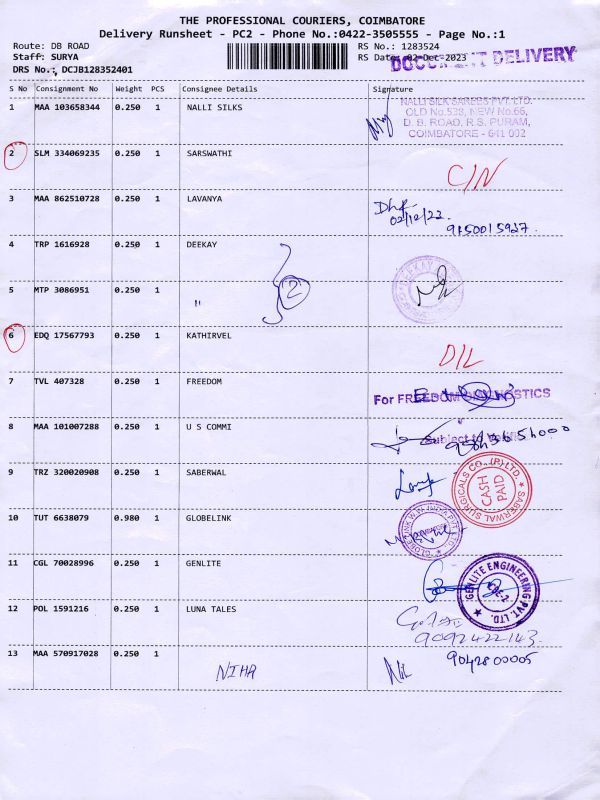 THE PROFESSIONAL COURIERS, COIMBATORE
Delivery Runsheet - PC2 - Phone No.:0422-3505555 - Page No.:1
Route: DB ROAD
RS No.: 1283524
Staff: SURYA
RS Date: 02-Dec-2023
DOCUMENT DELIVERY
DRS No.: DCJB128352401
S No Consignment No Weight PCS Consignee Details Signature
1 MAA 103658344 0.250 1 NALLI SILKS
NALLI SILK SAREES PVT. LTD.
OLD No.538, NEW No.66,
D. B. ROAD, R.S. PURAM,
COIMBATORE - 641 002
2 SLM 334069235 0.250 1 SARSWATHI
C/N
3 MAA 862510728 0.250 1 LAVANYA
02/12/22.
9150015927.
4 TRP 1616928 0.250 1 DEEKAY
DEEKAY
5 MTP 3086951 0.250 1 " 2
6 EDQ 17567793 0.250 1 KATHIRVEL
D/L
7 TVL 407328 0.250 1 FREEDOM
For FREEDOM DIAGNOSTICS
8 MAA 101007288 0.250 1 U S COMMI
Subject to
9 TRZ 320020908 0.250 1 SABERWAL
SABERWAL SURGICALS CO., (P) LTD.
CASH
PAID
10 TUT 6638079 0.980 1 GLOBELINK
GLOBELINK WW INDIA PVT. LTD.
11 CGL 70028996 0.250 1 GENLITE
GENLITE ENGINEERING PVT. LTD.
12 POL 1591216 0.250 1 LUNA TALES
9092422143
13 MAA 570917028 0.250 1
NIHA
9042800005